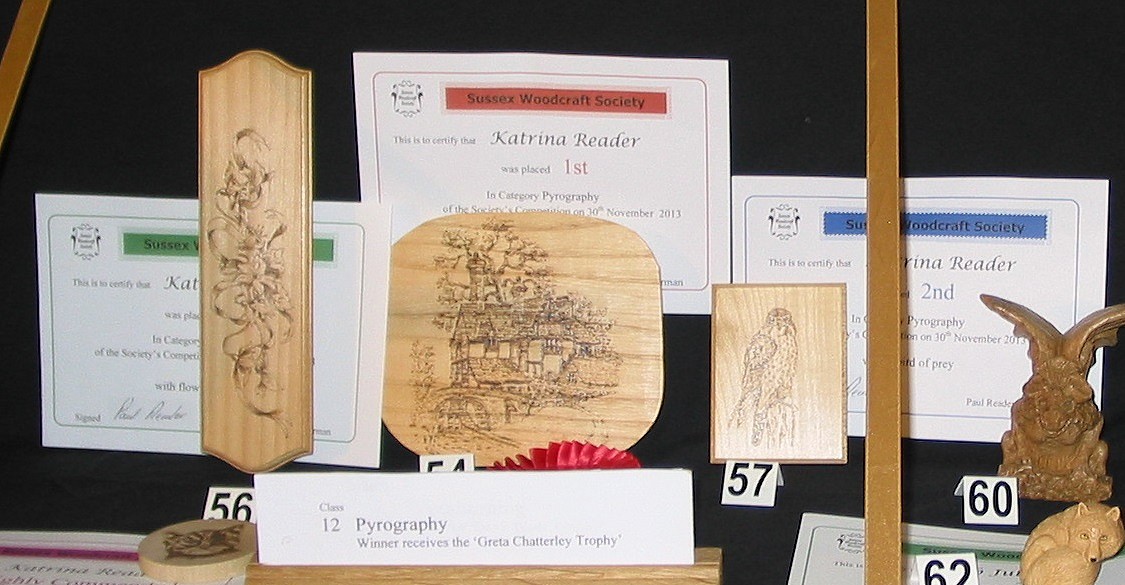 Sussex Woodcraft Society
This is to certify that Katrina Reader
was placed 1st
In Category Pyrography
of the Society's Competition on 30th November 2013
Sussex
This is to certify that Kat
was
In
of the Society's
with
Signed Paul Reader
Sussex Woodcraft Society
This is to certify that Reader
2nd
In Pyrography
on 30th November 2013
of prey
Paul Reader
56
54
57
60
62
Class
12 Pyrography
Winner receives the 'Greta Chatterley Trophy'
Katrina Reader
Highly Commended
This is